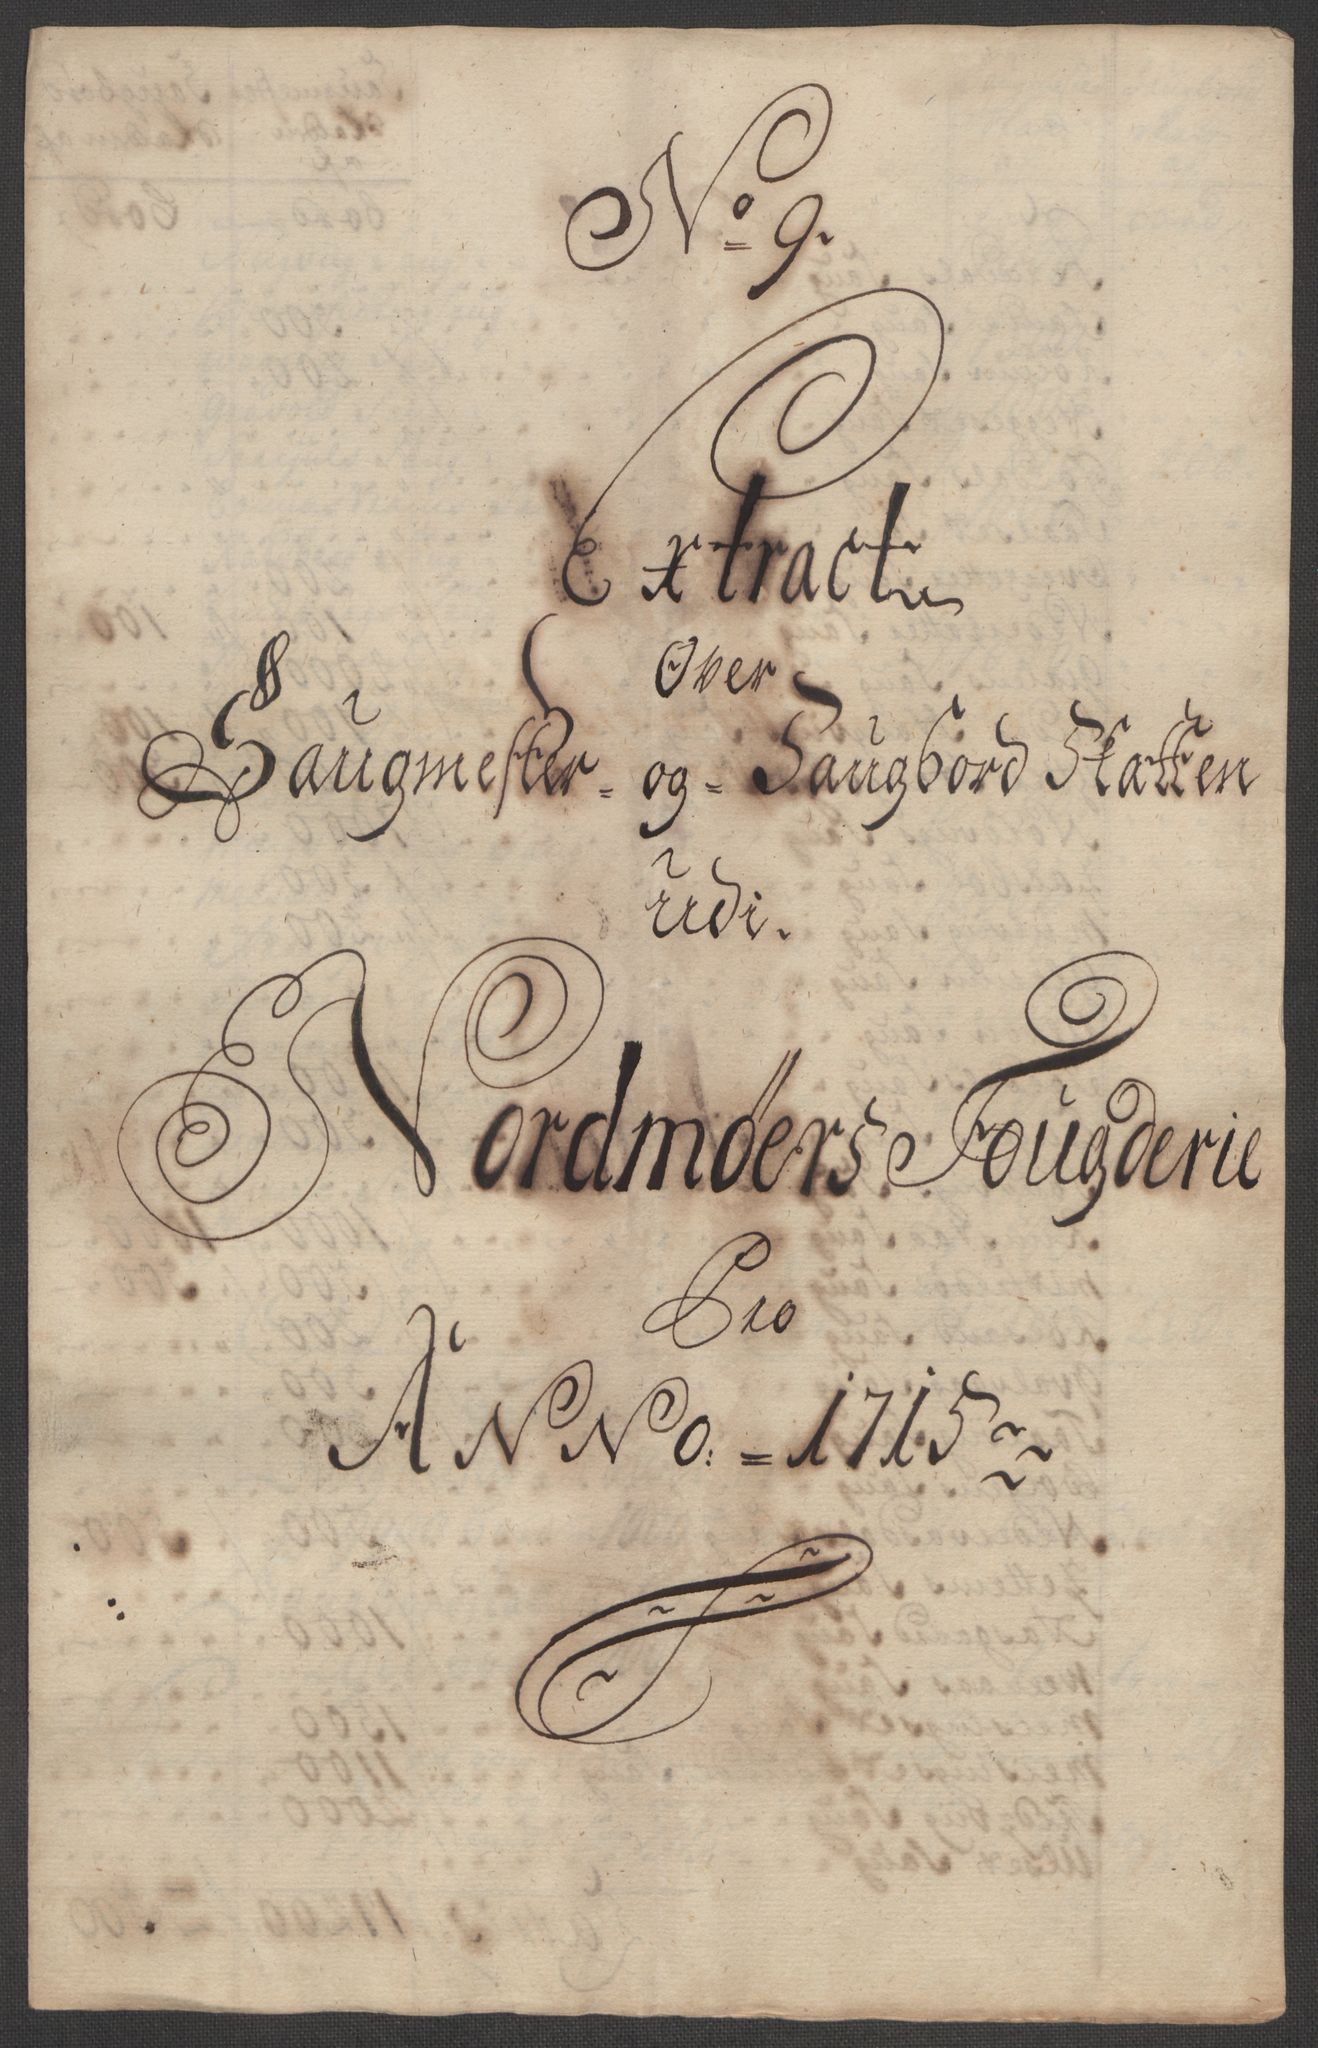 No 9.
Extract
Over
Saugmester- og- Saugbord Skatten
udi.
Nordmöers Fougderie
Pro
ANNO: = 1715